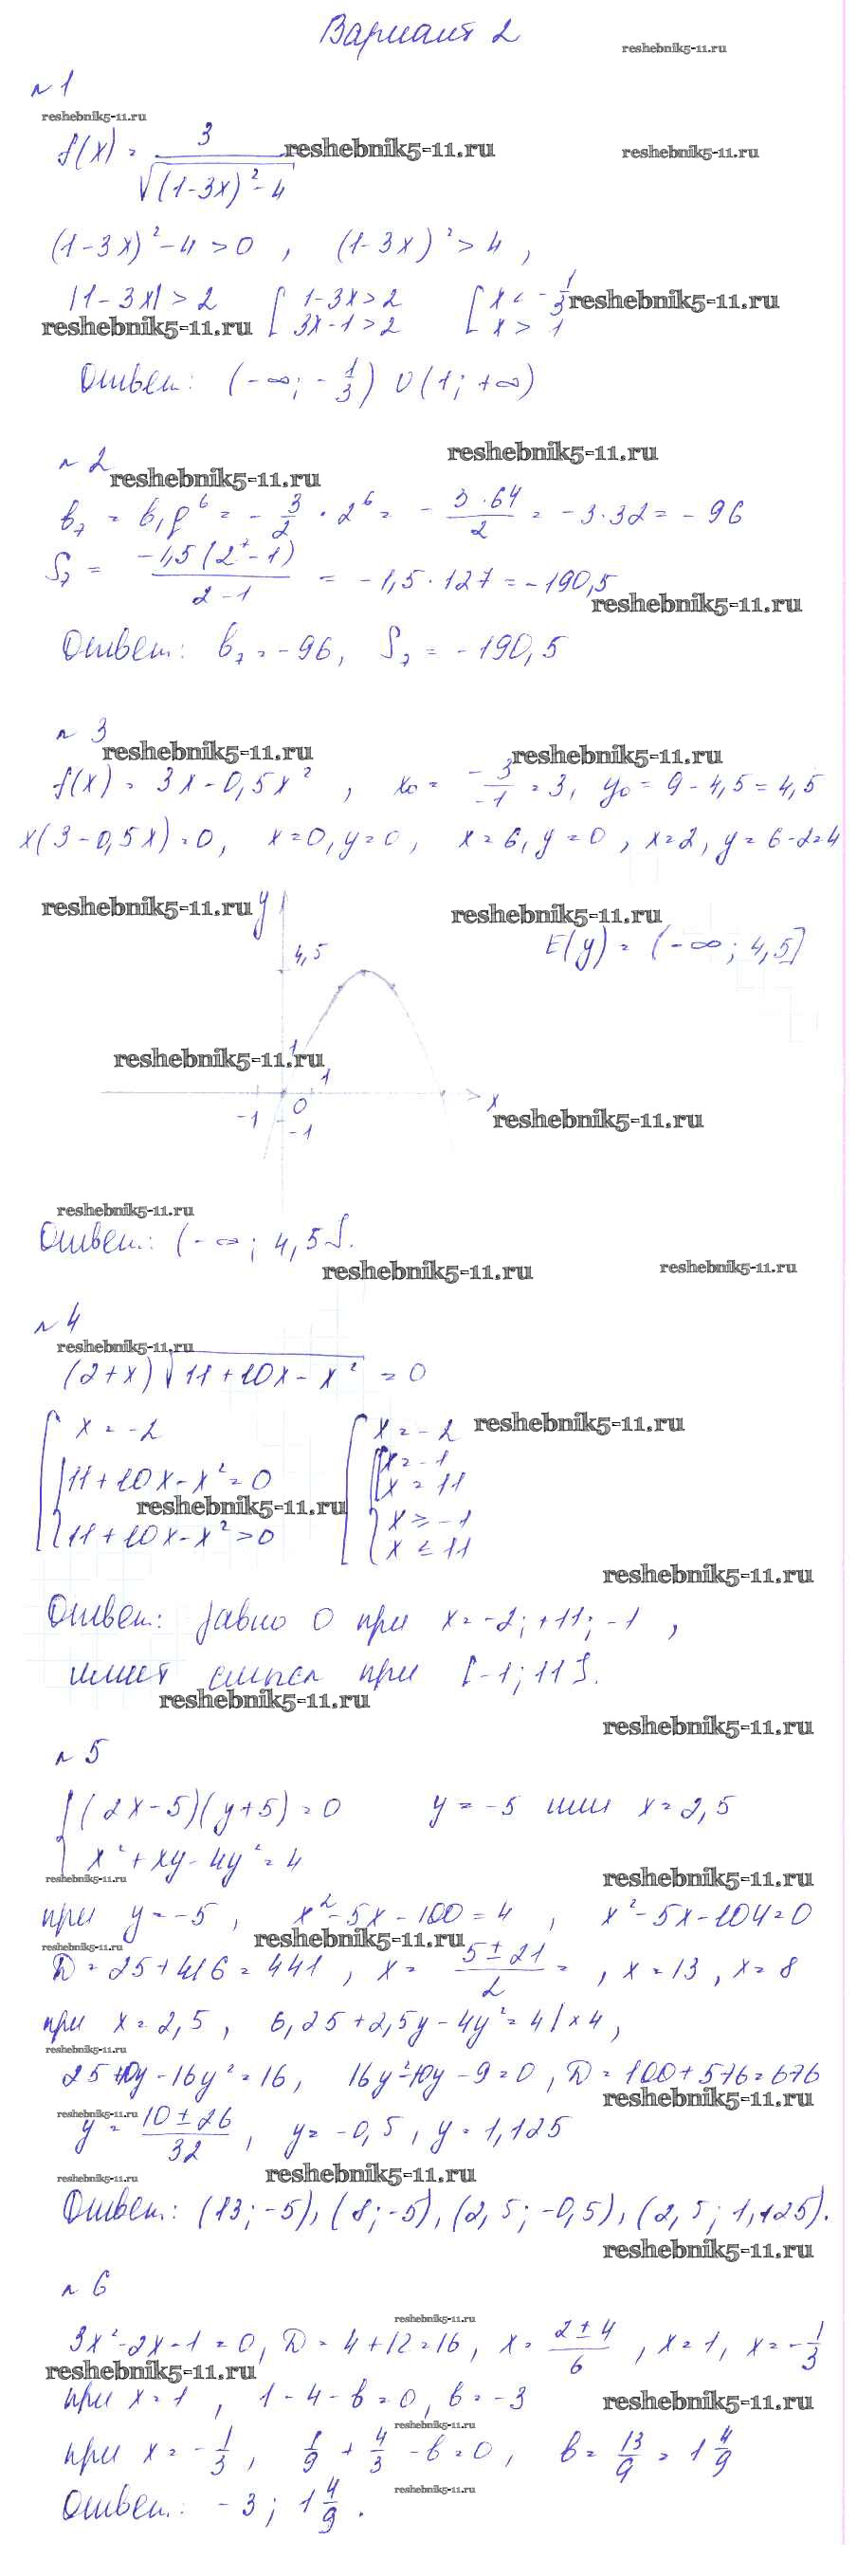 Вариант 2
reshebnik5-11.ru
№1
reshebnik5-11.ru
f(x) = 3 / √((1-3x)² - 4)
reshebnik5-11.ru
reshebnik5-11.ru
(1-3x)² - 4 > 0 , (1-3x)² > 4 ,
|1-3x| > 2 [ 1-3x > 2 [ x < -1/3
reshebnik5-11.ru
reshebnik5-11.ru
3x-1 > 2 x > 1
Ответ: (-∞; -1/3) ∪ (1; +∞)
reshebnik5-11.ru
№2
reshebnik5-11.ru
b₇ = b₁q⁶ = -3/2 · 2⁶ = - 3·64/2 = -3·32 = -96
S₇ = -1,5(2⁷-1) / 2-1 = -1,5·127 = -190,5
reshebnik5-11.ru
Ответ: b₇ = -96, S₇ = -190,5
№3
reshebnik5-11.ru
reshebnik5-11.ru
f(x) = 3x - 0,5x² , x₀ = -3/-1 = 3, y₀ = 9 - 4,5 = 4,5
x(3-0,5x) = 0, x=0, y=0, x=6, y=0, x=2, y=6-2=4
reshebnik5-11.ru
y
reshebnik5-11.ru
4,5
E(y) = (-∞; 4,5]
reshebnik5-11.ru
1
1
-1 0 x
-1
reshebnik5-11.ru
reshebnik5-11.ru
Ответ: (-∞; 4,5].
reshebnik5-11.ru
reshebnik5-11.ru
№4
reshebnik5-11.ru
(2+x)√(11+10x-x²) = 0
[ x = -2 [ x = -2
reshebnik5-11.ru
{ 11+10x-x² = 0 [ x = -1
x = 11
reshebnik5-11.ru
11+10x-x² > 0 { x ≥ -1
x ≤ 11
reshebnik5-11.ru
Ответ: равно 0 при x = -2; +11; -1 ,
имеет смысл при [-1; 11].
reshebnik5-11.ru
reshebnik5-11.ru
№5
{ (2x-5)(y+5) = 0 y = -5 или x = 2,5
x² + xy - 4y² = 4
reshebnik5-11.ru
reshebnik5-11.ru
при y = -5 , x² - 5x - 100 = 4 , x² - 5x - 104 = 0
reshebnik5-11.ru
reshebnik5-11.ru
D = 25+416 = 441 , x = 5±21/2 = , x = 13 , x = 8
при x = 2,5 , 6,25+2,5y-4y² = 4 | ×4 ,
reshebnik5-11.ru
25+10y-16y² = 16, 16y²-10y-9 = 0 , D = 100+576 = 676
reshebnik5-11.ru
reshebnik5-11.ru
y = 10±26/32 , y = -0,5 , y = 1,125
reshebnik5-11.ru
reshebnik5-11.ru
Ответ: (13; -5), (8; -5), (2,5; -0,5), (2,5; 1,125).
reshebnik5-11.ru
№6
reshebnik5-11.ru
3x²-2x-1 = 0, D = 4+12 = 16, x = 2±4/6 , x = 1, x = -1/3
reshebnik5-11.ru
при x = 1 , 1-4-b = 0, b = -3
reshebnik5-11.ru
reshebnik5-11.ru
при x = -1/3 , 1/9 + 4/3 - b = 0 , b = 13/9 = 1 4/9
reshebnik5-11.ru
Ответ: -3; 1 4/9 .